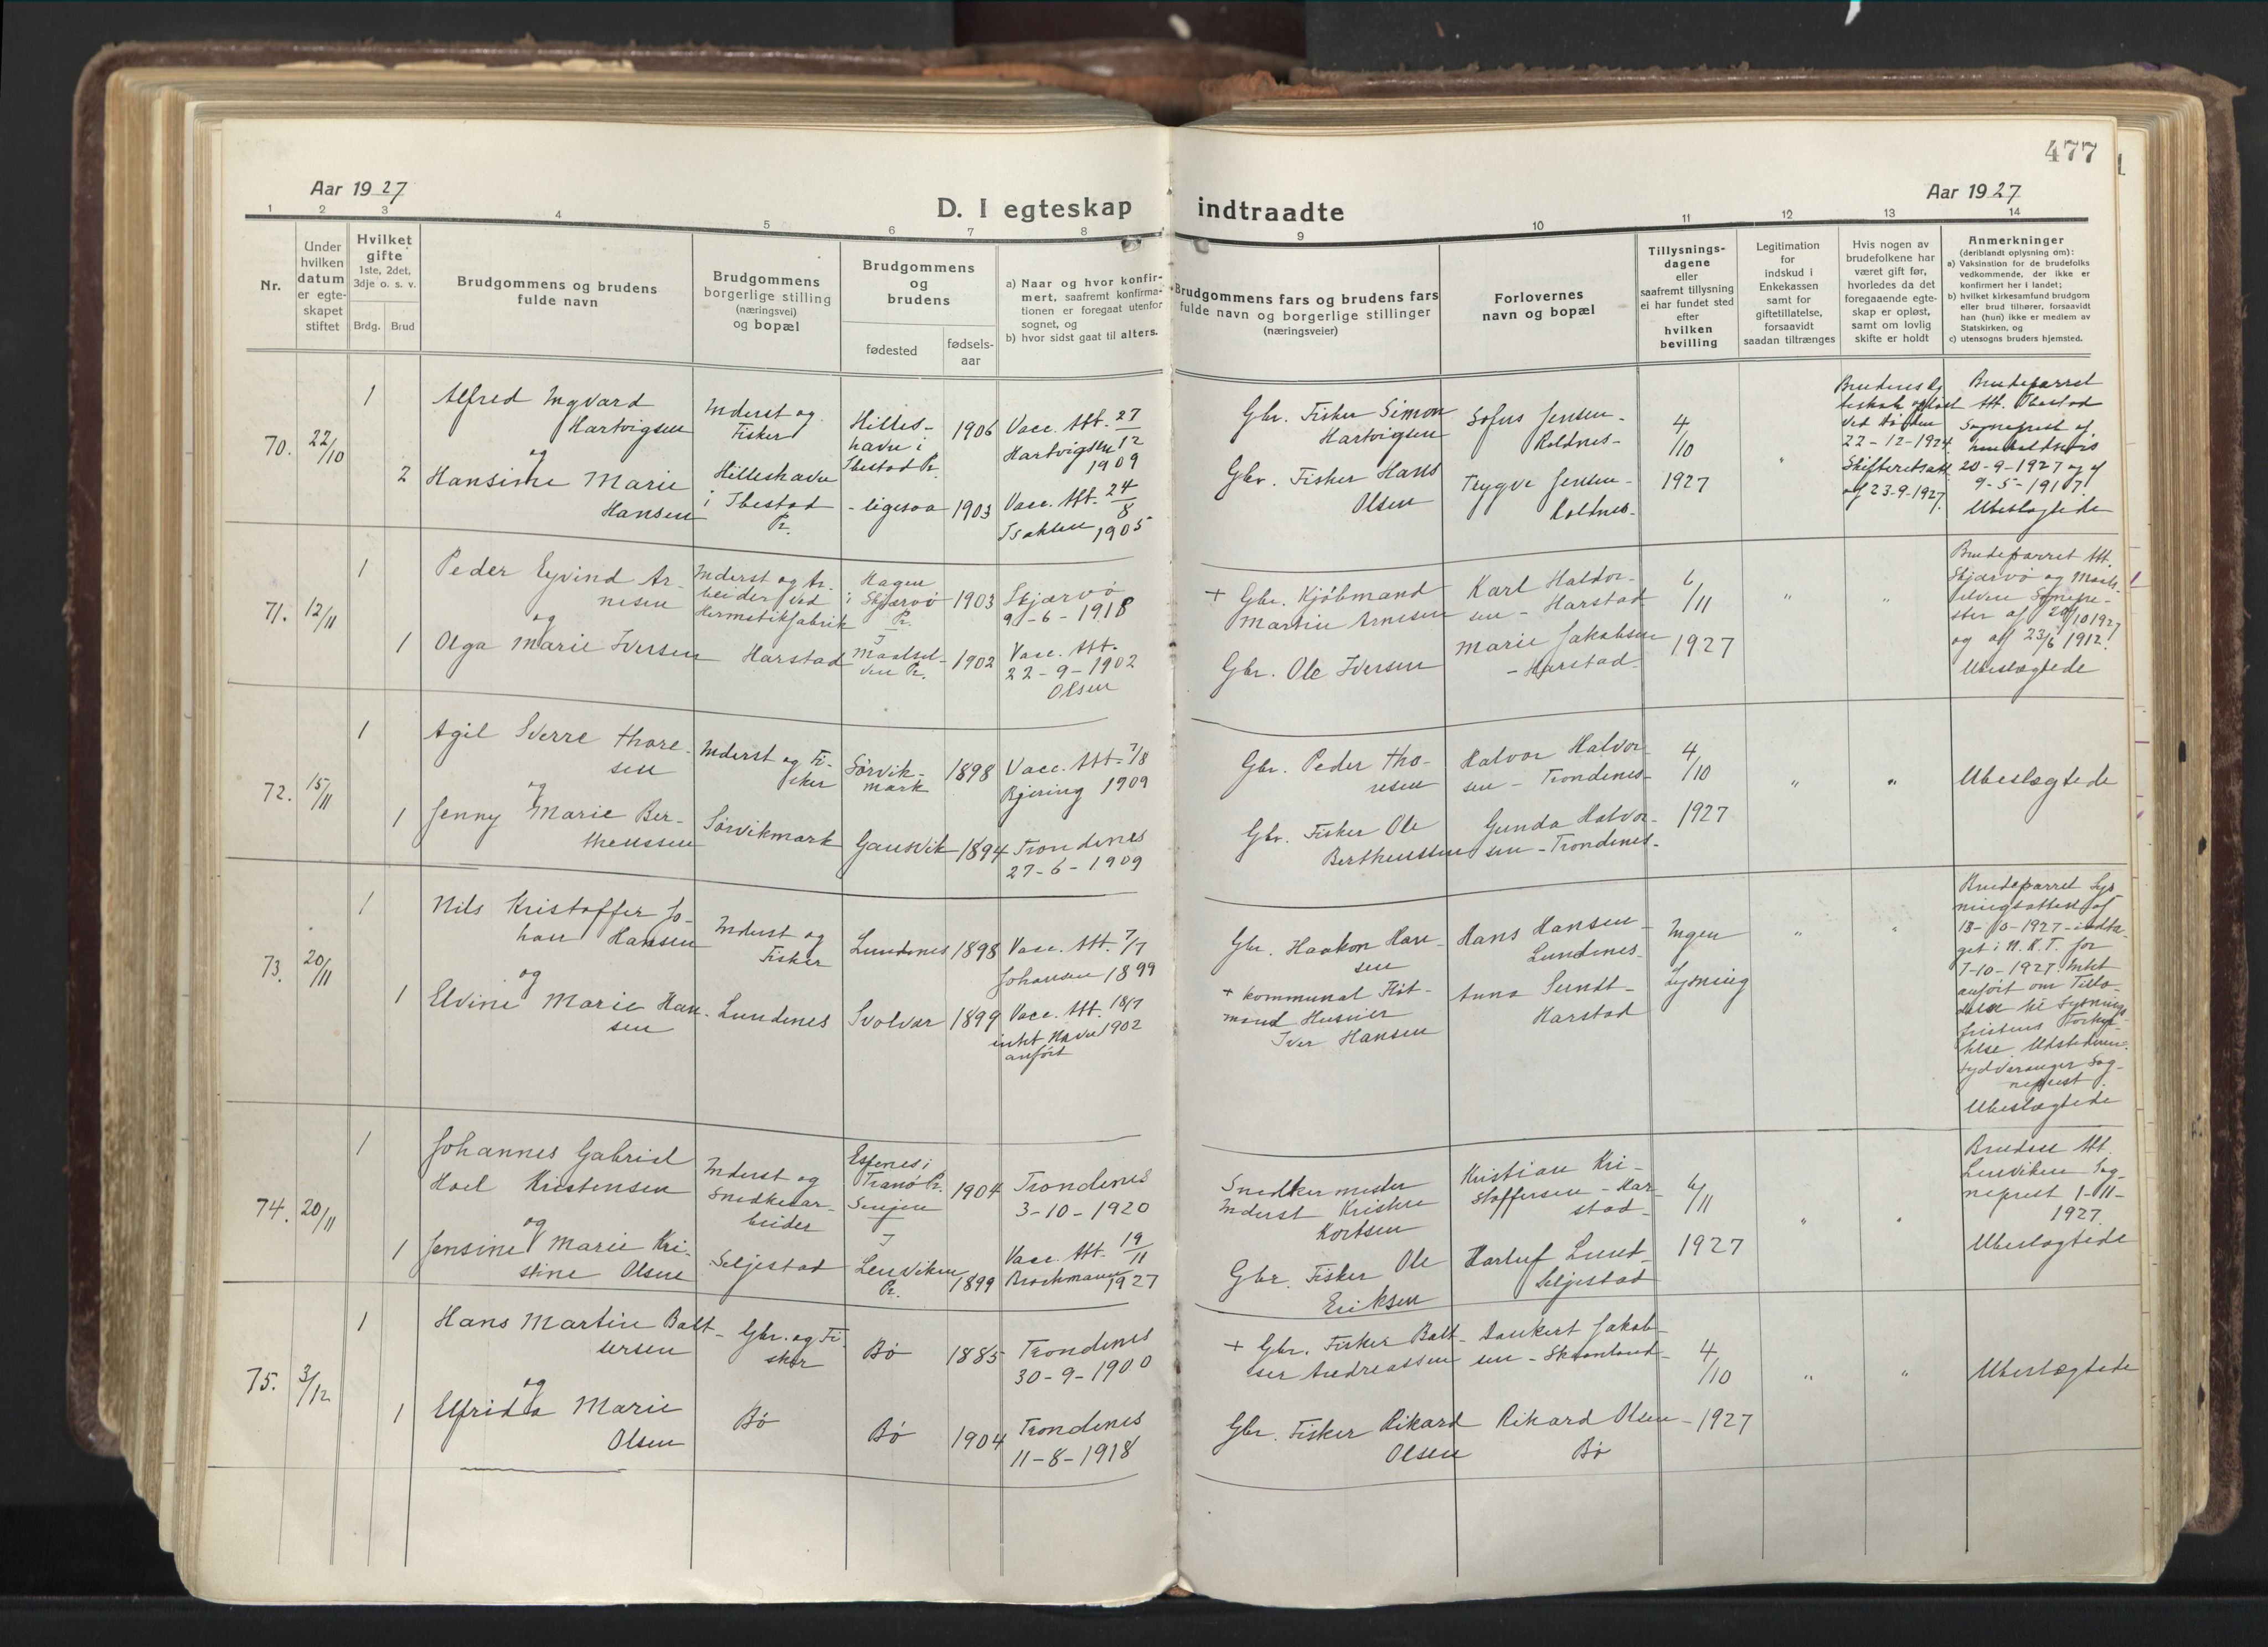 477
Aar 1927
Aar 1927
D. I egteskap indtraadte
1 2 3 4 5 6 7 8 9 10 11 12 13 14
Nr.
Under
hvilken
datum
er egte-
skapet
stiftet
Hvilket
gifte
1ste, 2det,
3dje o. s. v.
Brdg. Brud
Brudgommens og brudens
fulde navn
Brudgommens
borgerlige stilling
(næringsvei)
og bopæl
Brudgommens
og
brudens
fødested
fødsels-
aar
a) Naar og hvor konfir-
mert, saafremt konfirma-
tionen er foregaat utenfor
sognet, og
b) hvor sidst gaat til alters.
Brudgommens fars og brudens fars
fulde navn og borgerlige stillinger
(næringsveier)
Forlovernes
navn og bopæl
Tillysnings-
dagene
eller
saafremt tillysning
ei har fundet sted
efter
hvilken
bevilling
Legitimation
for
indskud i
Enkekassen
samt for
giftetillatelse,
forsaavidt
saadan tiltrænges
Hvis nogen av
brudefolkene har
været gift før,
hvorledes da det
foregaaende egte-
skap er opløst,
samt om lovlig
skifte er holdt
Anmerkninger
(deriblandt oplysning om):
a) Vaksination for de brudefolks
vedkommende, der ikke er
konfirmert her i landet;
b) hvilket kirkesamfund brudgom
eller brud tilhører, forsaavidt
han (hun) ikke er medlem av
Statskirken, og
c) utensogns bruders hjemsted.
70.
22/10
1
2
Alfred Ingvard
Hartvigsen
og
Hansine Marie
Hansen
Inderst og
Fisker
Hilleshavn
i Ibestad
Pr.
Hilles-
havn i
Ibestad Pr.
1906
- ligesaa
1903
Vacc. Att. 27/12
Hartvigsen
1909
Vacc. Att. 24/8
Isaksen 1905
Gbr. Fisker Simon
Hartvigsen
Gbr. Fisker Hans
Olsen
Sofus Jensen -
Roldnes-
Trygve Jensen -
Roldnes-
4/10
1927
"
ved Döden
22-12-1924.
Skifteretsatt.
af 23-9-1927.
Brudeparret
Att. Ibestad
Sogneprest af
20-9-1927 og af
9-5-1917.
Ubeslægtede
71.
12/11
1
1
Peder Eyvind Ar-
nesen
og
Olga Marie Iversen
Inderst og Ar-
beider ved
Hermetikfabrik
Harstad
Hagen
i Skjærvö
Pr.
1903
Maalsel-
ven Pr.
1902
Skjærvö
9-6-1918
Vacc. Att.
22-9-1902
Olsen
+ Gbr. Kjöbmand
Martin Arnesen
Gbr. Ole Iversen
Karl Haldor-
sen - Harstad
Marie Jakobsen
- Harstad-
6/11
1927
"
"
Brudeparret Att.
Skjærvö og Maals-
elven Sognepre-
ster af 29/10 1927
og af 23/6 1912.
Ubeslægtede
72.
15/11
1
1
Agil Sverre Thore-
sen
og
Jenny Marie Ber-
theussen
Inderst og Fi-
sker
Sörvikmark
Sörvik-
mark
1898
Gausvik
1894
Vacc. Att. 7/8
Bjering 1909
Trondenes
27-6-1909
Gbr. Peder Tho-
resen
Gbr. Fisker Ole
Bertheussen
Halvor Halvor-
sen - Trondenes-
Gunda Halvor-
sen - Trondenes-
4/10
1927
"
"
Ubeslægtede
73.
20/11
1
1
Nils Kristoffer Jo-
han Hansen
og
Elvine Marie Han-
sen
Inderst og
Fisker
Lundenes
Lundenes
1898
Svolvær
1899
Vacc. Att. 7/7
Johansen 1899
Vacc. Att. 18/7
intet Navn 1902
anfört
Gbr. Haakon Han-
sen
+ kommunal Flöt-
mand Huseier
Iver Hansen
Hans Hansen -
Lundenes-
Anna Sundt -
Harstad
Ingen
Lysning
"
"
Brudeparret Lys-
ningsattest af
18-10-1927 - indta-
get i N. K. T. for
7-10-1927. Intet
anfört om Tilla-
delse til Lysnings-
fristens Forkor-
telse. Udstederen:
Sydvaranger Sog-
neprest.
Ubeslægtede
74.
20/11
1
1
Johannes Gabriel
Hoel Kristensen
og
Jensine Marie Kri-
stine Olsen
Inderst og
Snedkerar-
beider
Seljestad
Espenes i
Tranö Pr.
Senjen
1904
Lenviken
Pr.
1899
Trondenes
3-10-1920
Vacc. Att. 19/11
Brochmann
1927
Snedkermester
Inderst Kristen
Kortsen
Gbr. Fisker Ole
Eriksen
Kristian Kri-
stoffersen - Har-
stad-
Harluf Lund-
Seljestad
6/11
1927
"
"
Bruden Att.
Lenviken Sog-
neprest 1-11-
1927.
Ubeslægtede
75.
3/12
1
1
Hans Martin Balt-
sersen
og
Elfrida Marie
Olsen
Gbr. og Fi-
sker
Bö
Bö
1885
Bö
1904
Trondenes
30-9-1900
Trondenes
11-8-1918
+ Gbr. Fisker Balt-
ser Andreassen
Gbr. Fisker Rikard
Olsen
Dankert Jakob-
sen - Skaanland-
Rikard Olsen -
Bö
4/10
1927
"
"
Ubeslægtede